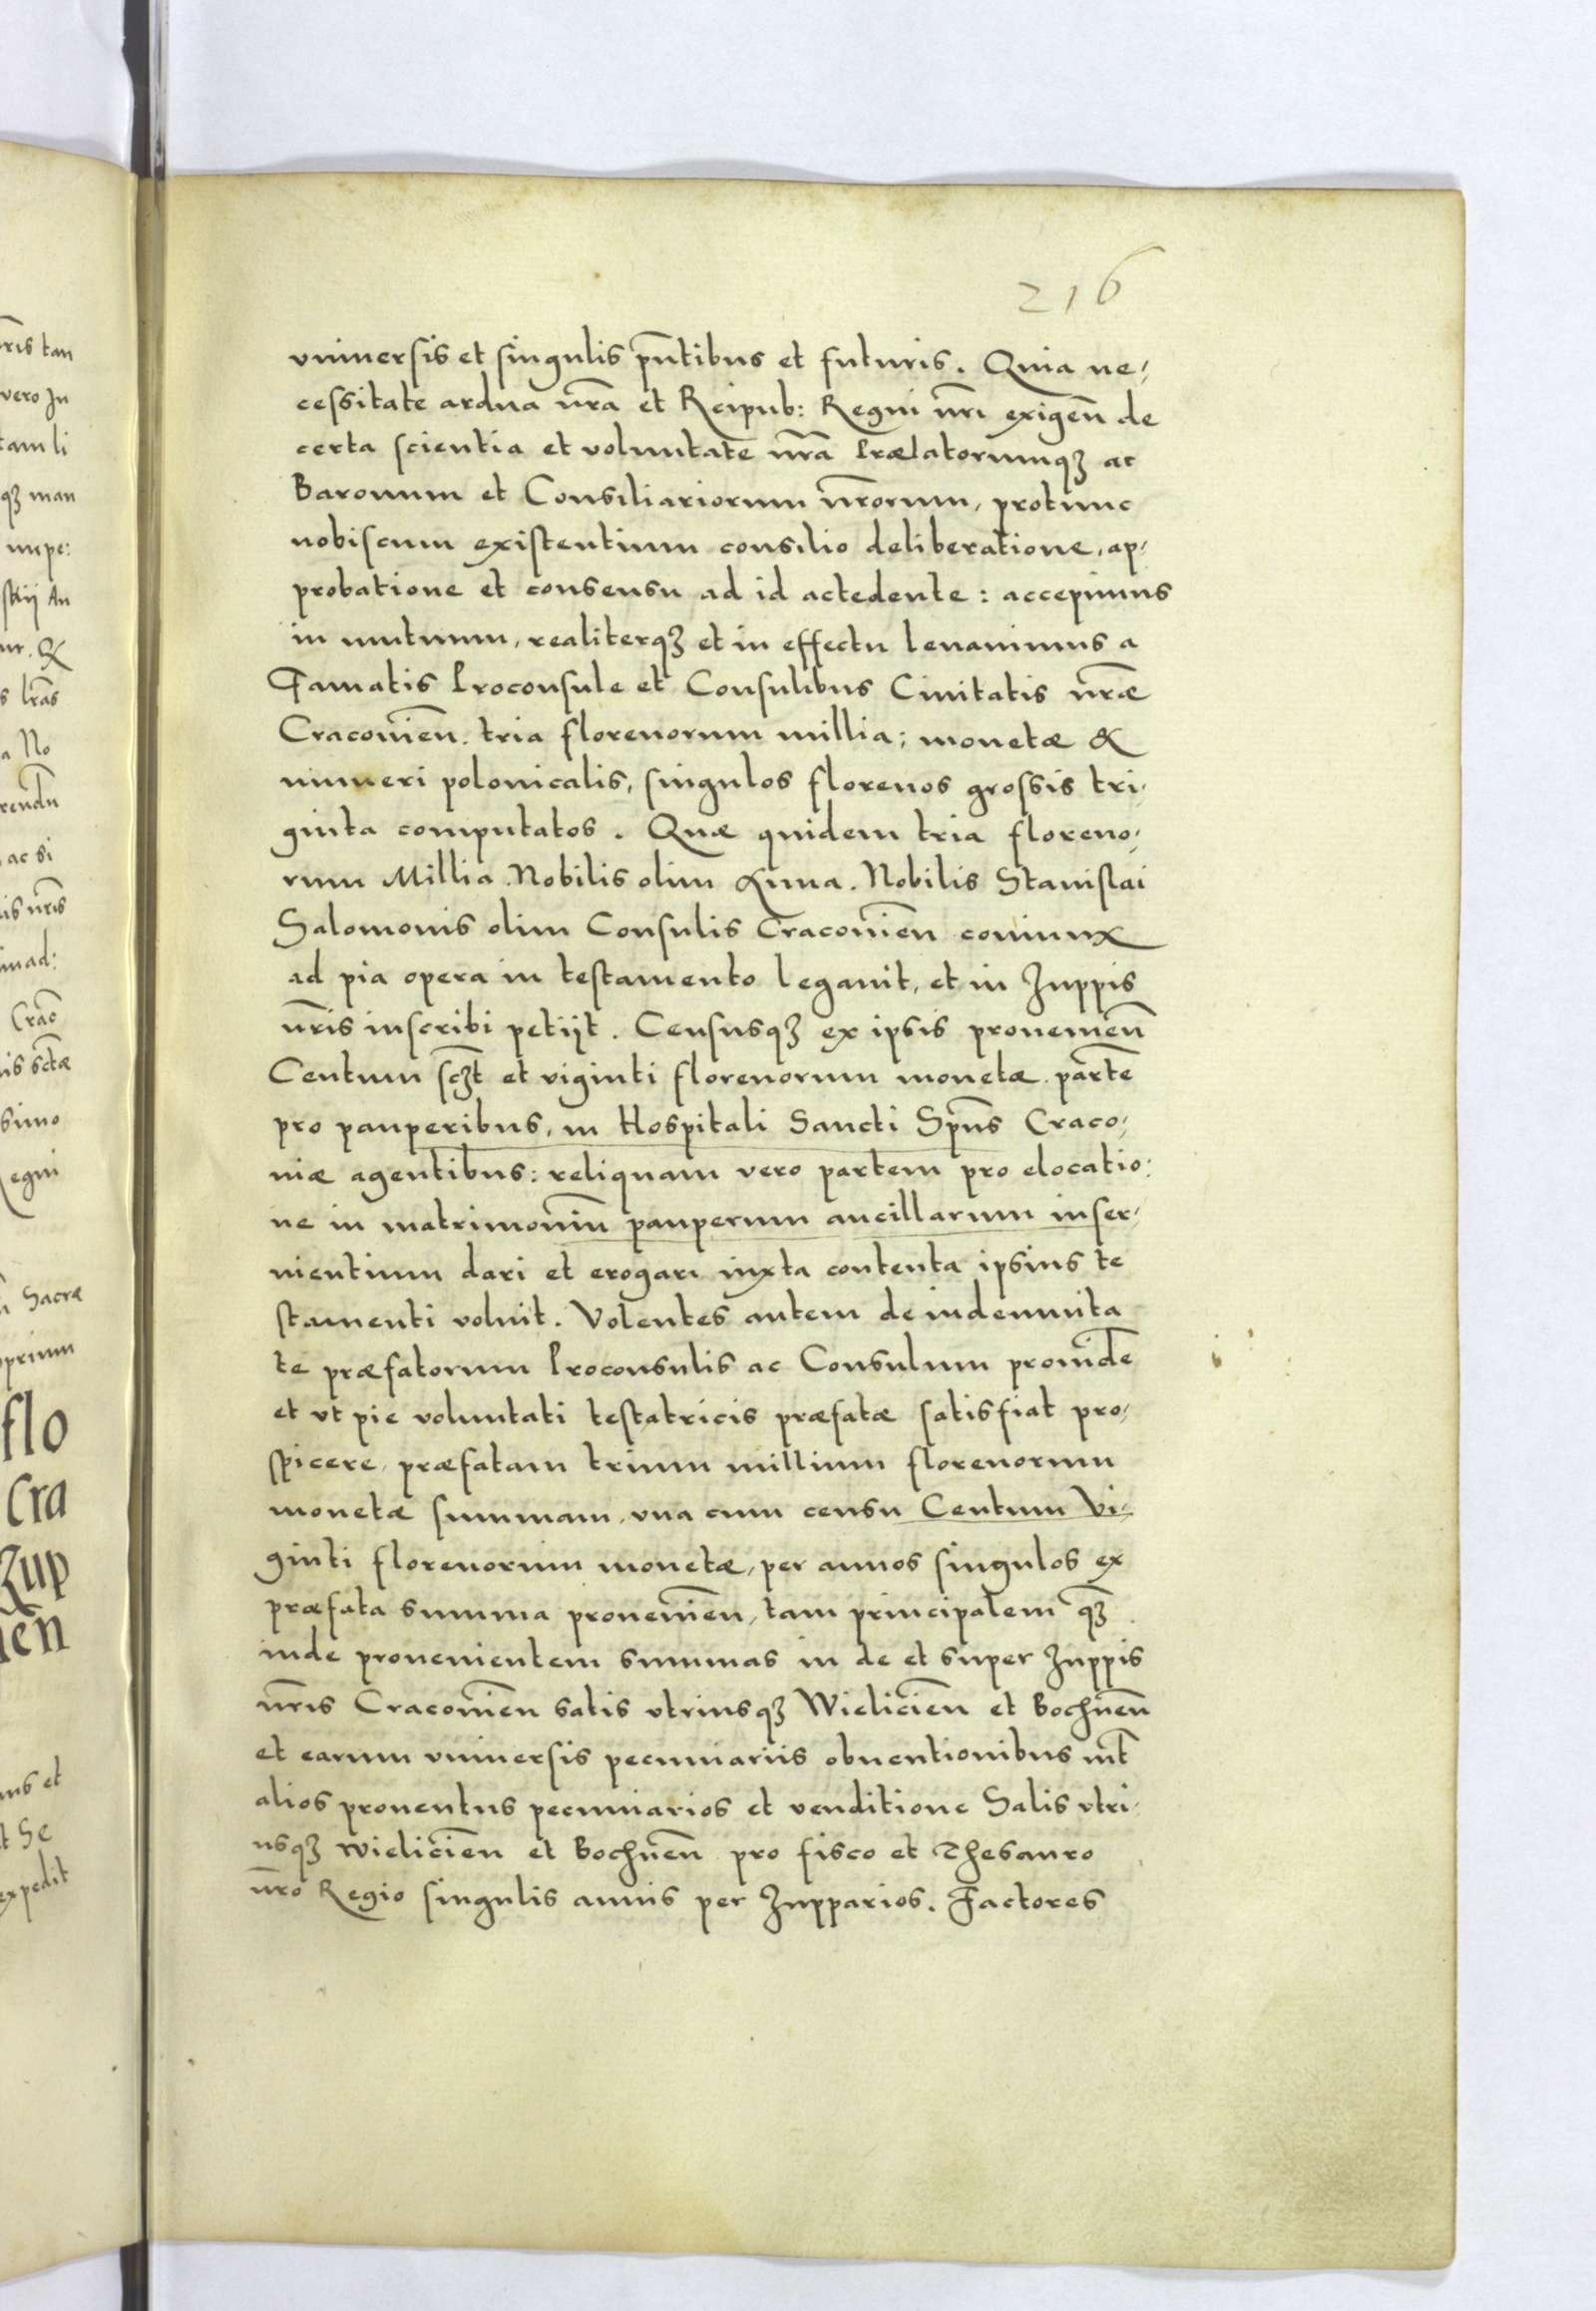 216
vniuersis et singulis pn̄tibus et futuris. Quia ne-
cessitate ardua nr̄a et Reipub: Regni nr̄i exigen̄ de
certa scientia et voluntate nr̄a Prælatorumqꝫ ac
Baronum et Consiliariorum nr̄orum, protunc
nobiscum existentium consilio deliberatione, ap-
probatione et consensu ad id actedente: accepimus
in mutuum, realiterqꝫ et in effectu leuauimus a
Famatis Proconsule et Consulibus Ciuitatis nr̄æ
Cracouien̄. tria florenorum millia; monetæ &
numeri polonicalis, singulos florenos grossis tri-
ginta computatos. Quæ quidem tria floreno-
rum Millia. Nobilis olim Anna. Nobilis Stanislai
Salomonis olim Consulis Cracouien̄ coniunx
ad pia opera in testamento legauit, et in Zuppis
nr̄is inscribi petijt. Censusqꝫ ex ipsis prouenien̄
Centum scꝫt et viginti florenorum monetæ. partē
pro pauperibus, in Hospitali Sancti Spūs Craco-
uiæ agentibus: reliquam vero partem pro elocatio:
ne in matrimoniū pauperum ancillarum inser-
uientium dari et erogari iuxta contenta ipsius te
stamenti voluit. Volentes autem de indemnita
te præfatorum Proconsulis ac Consulum prouidē
et vt pie voluntati testatricis præfatæ satisfiat pro-
spicere, præfatam trium millium florenorum
monetæ summam, vna cum censu Centum Vi-
ginti florenorum monetæ, per annos singulos ex
præfata summa prouenien̄, tam principalem qꝫ
inde prouenientem summas in de et super Zuppis
nr̄is Cracouien̄ salis vtriusqꝫ Wielicien̄ et Bochnen̄
et earum vniuersis pecuniariis obuentionibus int̄
alios prouentus pecuniarios et venditione Salis vtri-
usqꝫ Wielicien̄ et Bochnen̄ pro fisco et Thesauro
nr̄o Regio singulis annis per Zupparios. Factores